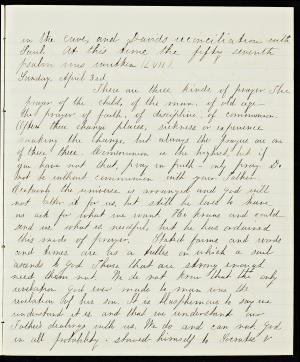 in the cave, and Davids reconciliation with
Saul. At this time the fifty seventh
psalm was written (LVII).
Sunday April 3rd
There are three kinds of prayer The
prayer of the child, of the man, of old age—
the prayer of faith, of discipline, of communion
Often these change places, sickness or experience
making the change, but always the prayers are one
of these three Communion is the highest, but if
you have not that, pray in faith— only pray. Do
not be without communion with your Father.
Certainly the universe is arranged and God will
not alter it for us, but still he loves to have
us ask for what we want He knows and could
send us what is needful, but he has ordained
this mode of prayer. Stated forms and words
and times are as a trellis on which a soul
ascends to God those that are strong enough
need them not. We do not know that the only
revelation God ever made to man was the
revelation by his son. It is blasphemous to say we
understand it is and that we understand our
Father's dealings with us. We do and can not God
in all probability showed himself to Socrates &